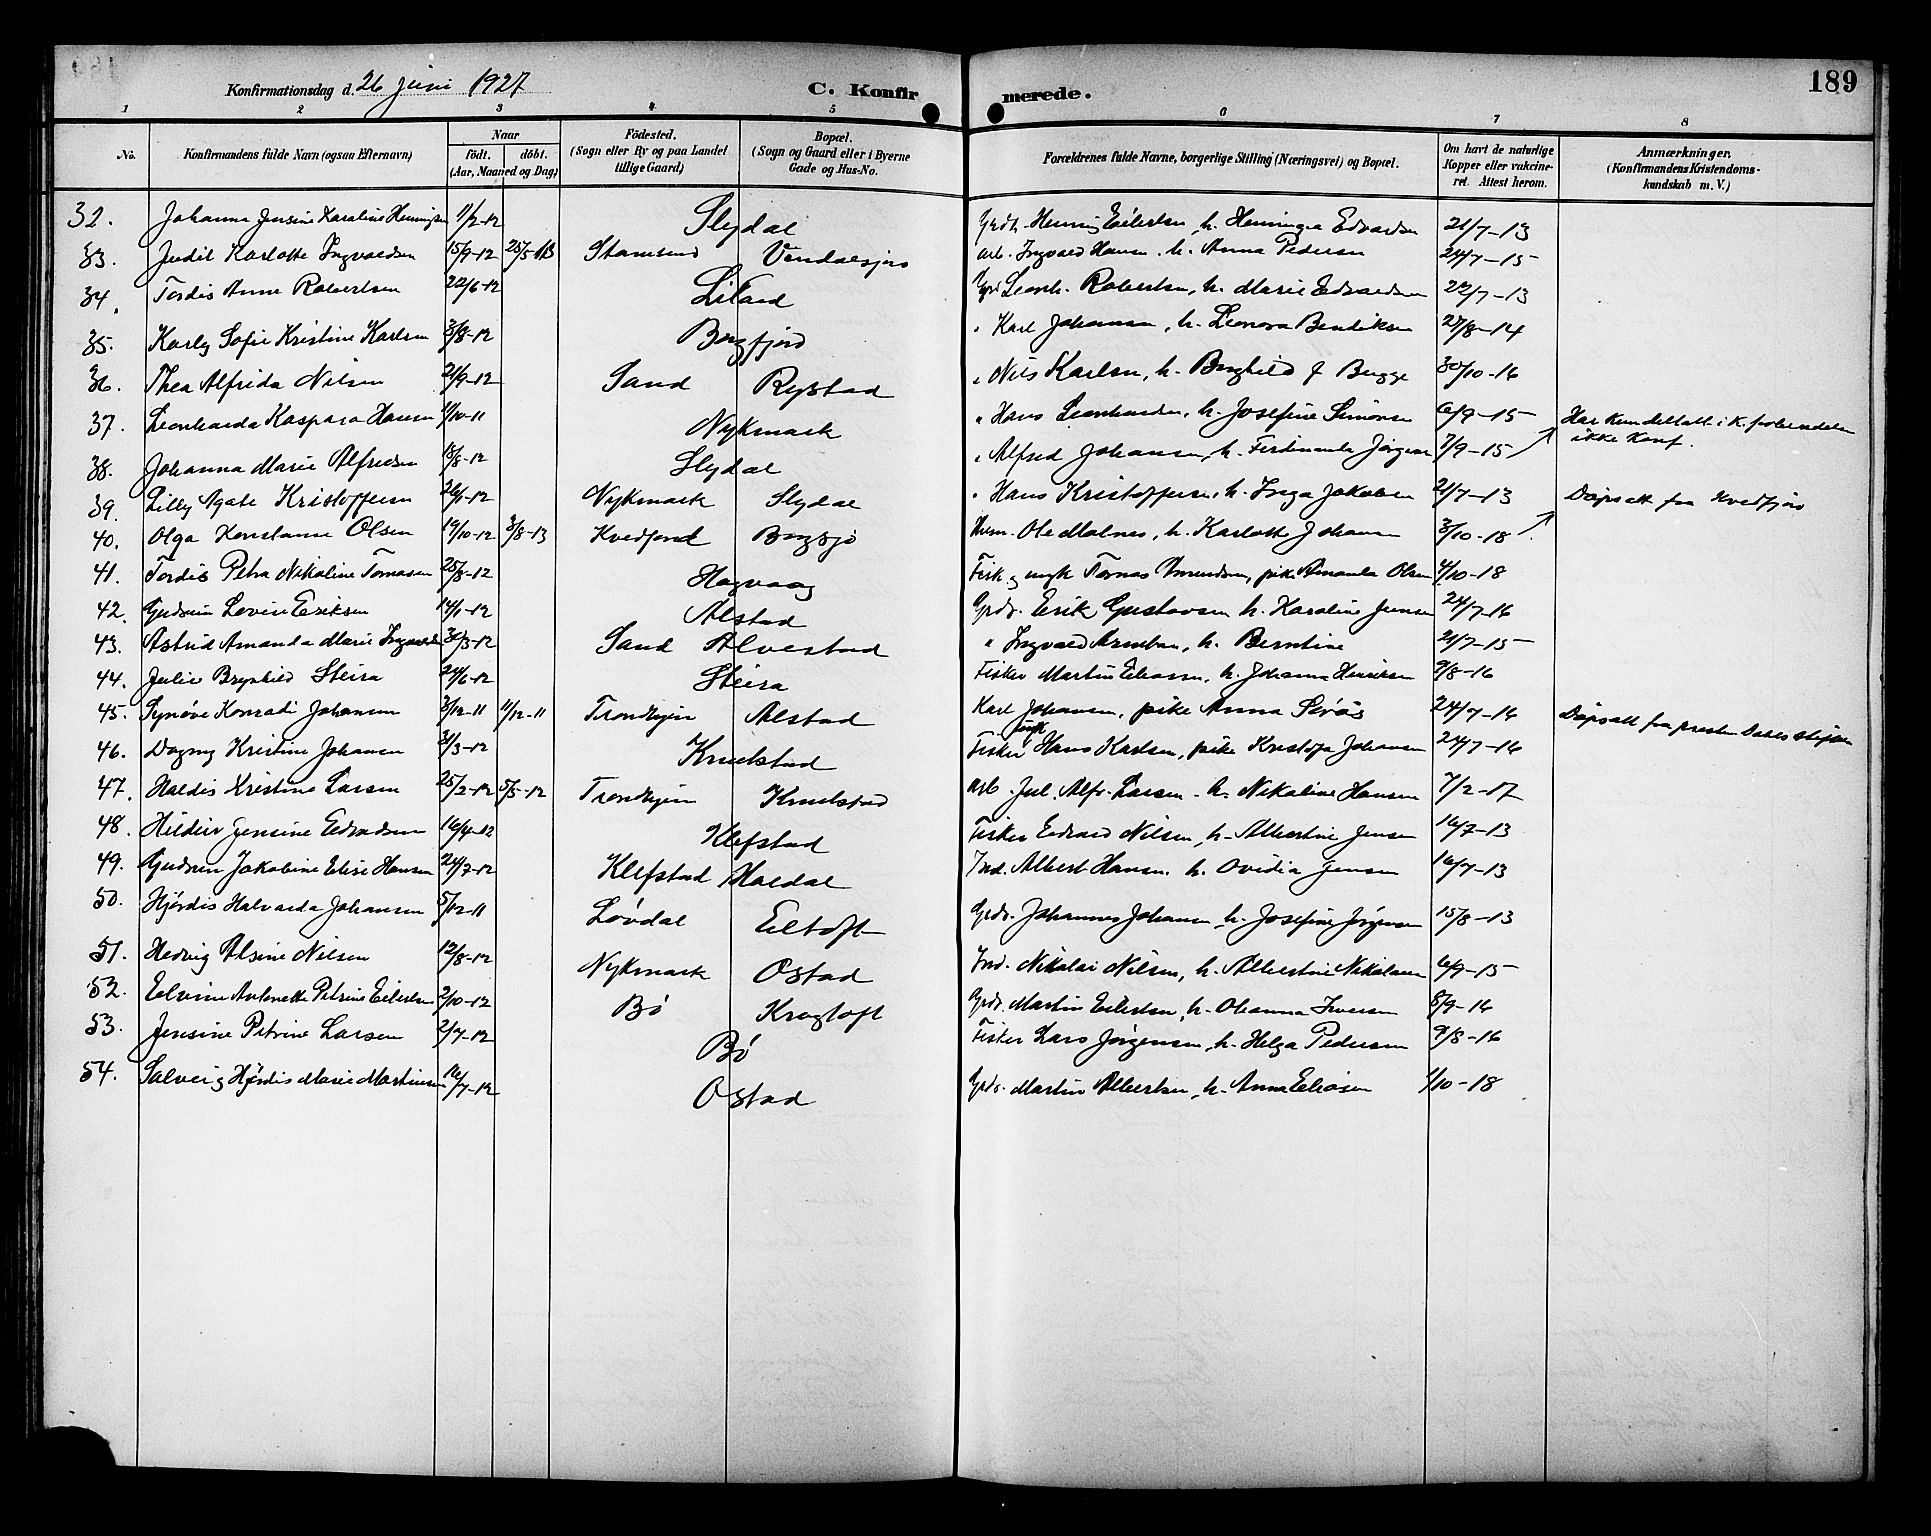 189
Konfirmationsdag d. 26 juni 1927
C. Konfirmerede.
1 2 3 4 5 6 7 8
No.
Konfirmandens fulde Navn (ogsaa Efternavn)
Naar
födt. döbt.
(Aar, Maaned og Dag)
Födested.
(Sogn eller By og paa Landet
tillige Gaard)
Bopæl.
(Sogn og Gaard eller i Byerne
Gade og Hus-No.
Forældrenes fulde Navne, borgerlige Stilling (Næringsvei) og Bopæl.
Om havt de naturlige
Kopper eller vakcine-
ret. Attest herom.
Anmærkninger.
(Konfirmandens Kristendoms-
kundskab m. V.)
32. Johanna Jensine Karoline Henningsen 11/2-12 Slydal Henning Eilertsen, h. Henninga Edvardsen 21/7-13
33. Judit Karlotte Ingvaldsen 15/9-12 25/5-13 Stamsund Vendalsjord arb. Ingvald Hansen, h. Anna Pedersen 24/7-15
34. Tordis Anne Robertsen 22/6-12 Liland Leonh. Robertsen, h. Marie Edvardsen 22/7-13
35. Karly Sofie Kristine Karlsen 3/8-12 Borgfjord " Karl Johansen, h. Leonora Bendiksen 27/8-14
36. Thea Alfrida Nilsen 21/9-12 Sand Rystad " Nils Karlsen, h. Borghild f Bugge 30/10-16
37. Leonharda Kaspara Hansen 1/10-11 Nykmark " Hans Leonhardsen, h. Josefine Simonsen 6/9-15 Har kun deltatt i K. forberedelsen
ikke Konf.
38. Johanna Marie Alfredsen 18/8-12 Slydal " Alfred Johansen, h. Ferdinanda Jörgensen 7/9-15
39. Lilly Agate Kristoffersen 26/1-12 Nykmark Slydal " Hans Kristoffersen, h. Inga Jakobsen 21/7-13 Dåpsatt fra Kvedfjord
40. Olga Konstanse Olsen 19/10-12 3/8-13 Kvedfjord Borgsjö Ole Molnes, h. Karlotte Johansen 3/10-18
41. Tordis Petra Nikoline Tomasen 25/8-12 Hagvaag Fisk. og ungk Tomas Amundsen, pike Amanda Olsen 4/10-18
42. Gudrun Lovise Eriksen 14/1-12 Alstad Grdr. Erik Gustavsen h. Karoline Jensen 24/7-16
43. Astrid Amanda Marie Ingvaldsen 30/3-12 Sand Alvestad " Ingvald Arntsen, h. Berntine 21/7-15
44. Julie Brynhild Steira 24/6-12 Steira Fisker Martin Eliassen, h. Johanna Henriksen 9/8-16
45. Synöve Konradi Johansen 3/12-11 11/12-11 Trondhjem Alstad Karl Johansen, pike Anna Sörås 24/7-16 Dåpsatt fra presten
46. Dagny Kristine Johansen 31/3-12 Knutstad Fisker ungk Hans Karlsen, pike Kristofa Johansen 24/7-16
47. Haldis Kristine Larsen 25/2-12 5/5-12 Trondhjem Knutstad arb. Jul. Alfr. Larsen. h. Nikoline Hansen 7/2-17
48. Hildur Jensine Edvardsen 16/4-12 Klefstad Fisker Edvard Nilsen, h. Albertine Jensen 16/7-13
49. Gudrun Jakobine Elise Hansen 24/7-12 Klefstad Haldal Ind. Albert Hansen. h. Ovidia Jensen 16/7-13
50. Hjördis Halvarda Johansen 5/12-11 Lövdal Eltoft Grdr. Johannes Johansen, h. Josefine Jörgensen 15/8-13
51. Hedvig Alsine Nilsen 12/8-12 Nykmark Ostad Ind. Nikolai Nilsen, h. Albertine Nikolaisen 6/9-15
52. Elvine Antonette Petrine Eilertsen 2/10-12 Bö Krogtoft Grdr. Martin Eilertsen, h. Oleanna Iversen 8/9-16
53. Jensine Petrine Larsen 2/7-12 Bö Fisker Lars Jörgensen, h. Helga Pedersen 9/8-16
54. Solveig Hjördis Marie Martinsen 16/7-12 Ostad Grdr. Martin Albertsen, h. Anna Eliasen 1/10-18